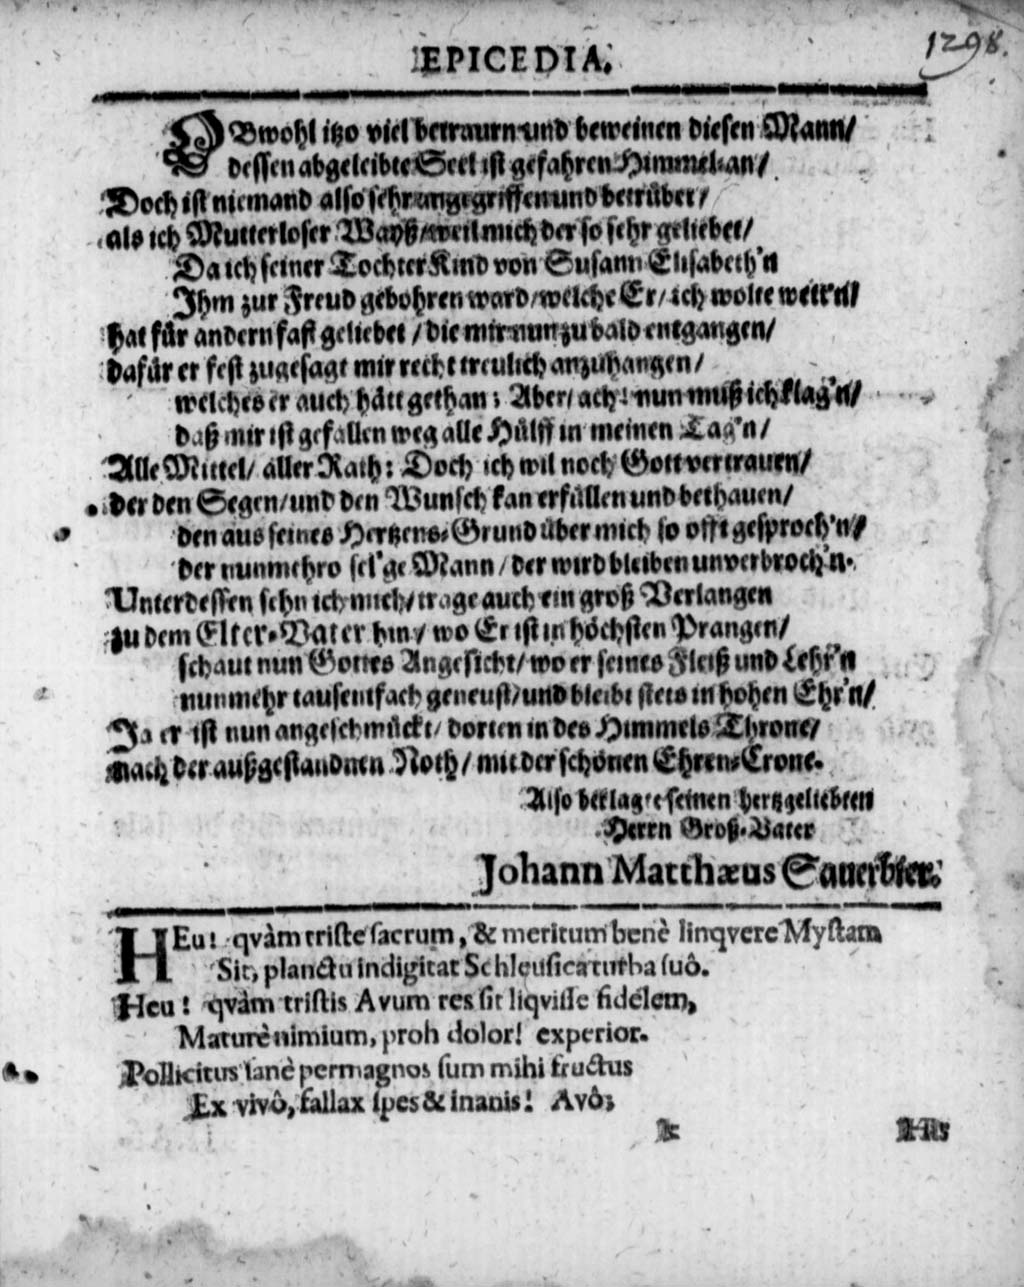 1298.
EPICEDIA.
OBwohl itzo viel betraurn und beweinen diesen Mann/
dessen abgeleibte Seel ist gefahren Himmel-an/
Doch ist niemand also sehr angegriffen und betrübet/
als ich Mutterloser Wayß/ weil mich der so sehr geliebet/
Da ich seiner Tochter Kind von Susann Elisabeth'n
Ihm zur Freud gebohren ward/ welche Er/ ich wolte wett'n/
hat für andern fast geliebet / die mir nun zu bald entgangen/
dafür er fest zugesagt mir recht treulich anzuhangen/
welches er auch hätt gethan; Aber/ ach! nun muß ich klag'n/
daß mir ist gefallen weg alle Hülff in meinen Tag'n/
Alle Mittel/ aller Rath: Doch ich wil noch Gott vertrauen/
der den Segen/ und den Wunsch kan erfüllen und bethauen/
den aus seines Hertzens-Grund über mich so offt gesproch'n/
der nunmehro sel'ge Mann/ der wird bleiben unverbroch'n.
Unterdessen sehn ich mich/ trage auch ein groß Verlangen
zu dem Elter-Vater hin/ wo Er ist in höchsten Prangen/
schaut nun Gottes Angesicht/ wo er seines Fleiß und Lehr'n
nunmehr tausentfach geneust/ und bleibt stets in hohen Ehr'n/
Ja er ist nun angeschmückt/ dorten in des Himmels Throne/
nach der außgestandnen Noth/ mit der schönen Ehren-Crone.
Also beklagte seinen hertzgeliebten
Herrn Groß-Vater
Johann Matthæus Sauerbier.
HEu! qvàm triste sacrum, & meritum benè linqvere Mystam
Sit, planctu indigitat Schleusica turba suô.
Heu! qvàm tristis Avum res sit liqvisse fidelem,
Maturè nimium, proh dolor! experior.
Pollicitus sanè permagnos sum mihi fructus
Ex vivô, fallax spes & inanis! Avô;
k His